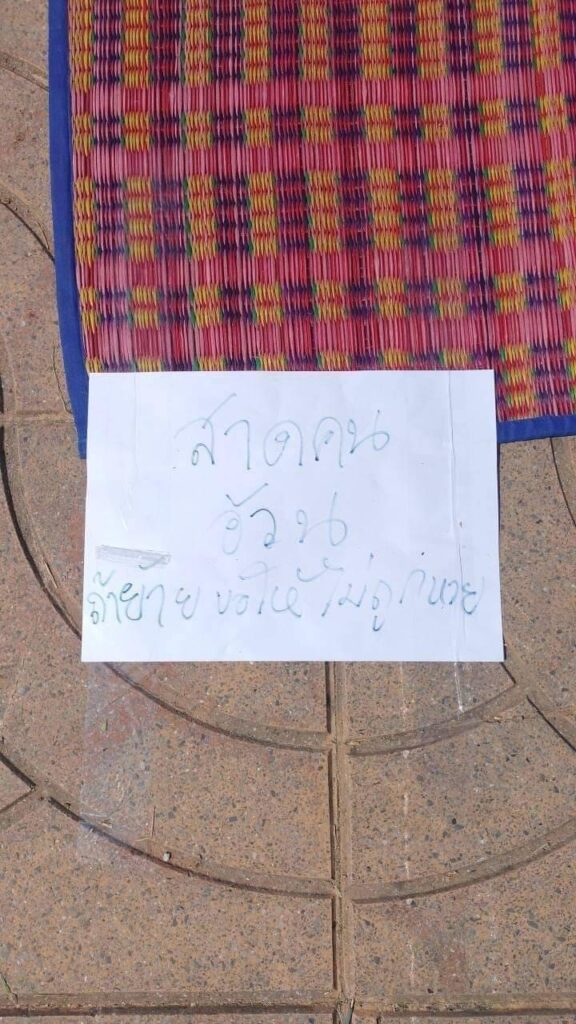 สาดคน
อ้วน
ถ้าย้าย ขอให้ ไม่ถูกหวย